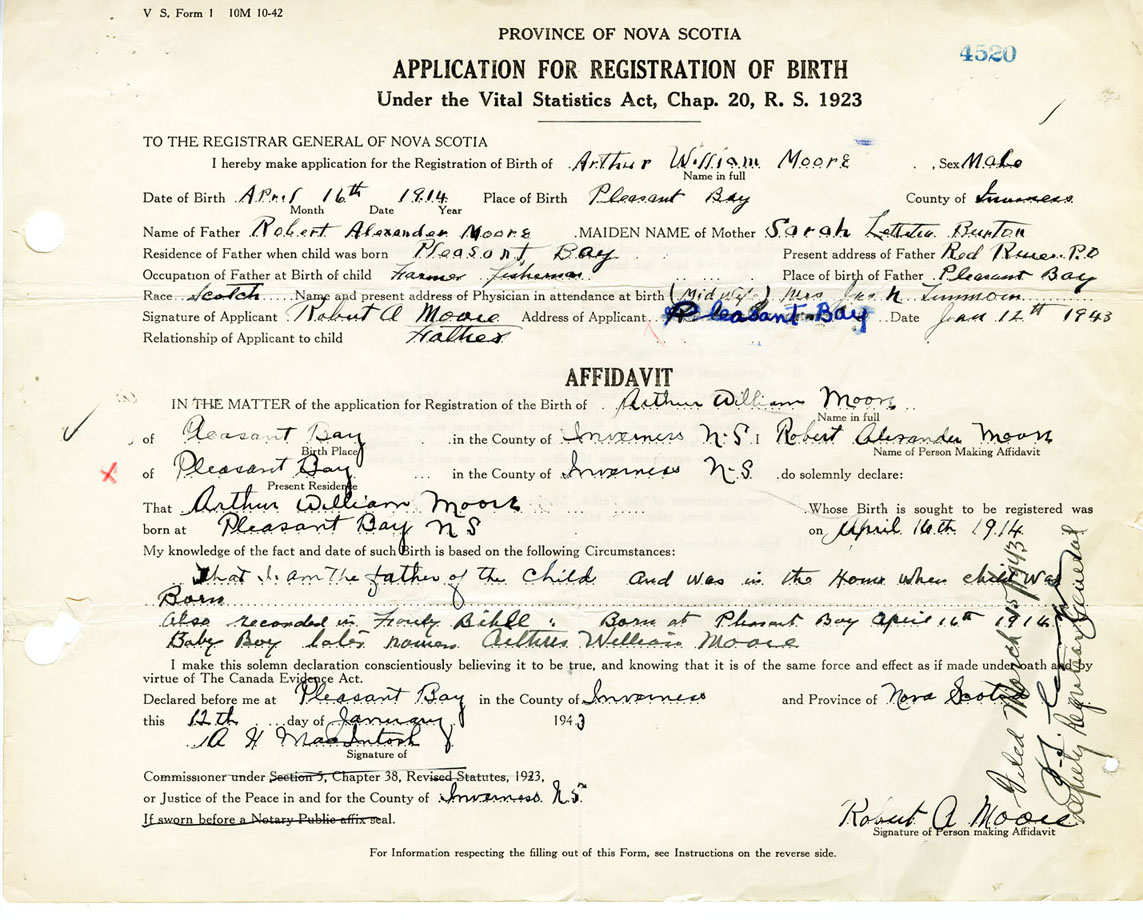 V S. Form 1 10M 10-42
PROVINCE OF NOVA SCOTIA
4520
APPLICATION FOR REGISTRATION OF BIRTH
Under the Vital Statistics Act, Chap. 20, R. S. 1923
TO THE REGISTRAR GENERAL OF NOVA SCOTIA
I hereby make application for the Registration of Birth of Arthur William Moore Sex Male
Name in full
Date of Birth April 16th 1914 Place of Birth Pleasant Bay County of Inverness
Month Date Year
Name of Father Robert Alexander Moore MAIDEN NAME of Mother Sarah Burton
Residence of Father when child was born Pleasant Bay Present address of Father Red River P.O
Occupation of Father at Birth of child Farmer fisherman Place of birth of Father Pleasant Bay
Race Scotch Name and present address of Physician in attendance at birth (Mid Wife) Mrs
Signature of Applicant Robert A Moore Address of Applicant Pleasant Bay Date Jan 12th 1943
Relationship of Applicant to child Father
AFFIDAVIT
IN THE MATTER of the application for Registration of the Birth of Arthur William Moore
Name in full
of Pleasant Bay in the County of Inverness N.S I Robert Alexander Moore
Birth Place Name of Person Making Affidavit
of Pleasant Bay in the County of Inverness N.S. do solemnly declare:
Present Residence
That Arthur William Moore Whose Birth is sought to be registered was
born at Pleasant Bay N S on April 16th 1914
My knowledge of the fact and date of such Birth is based on the following Circumstances:
That I am the father of the child and was in the Home when child was
Born
Also recorded in Bible Born at Pleasant Bay April 16th 1914
Baby Boy Arthur William Moore
I make this solemn declaration conscientiously believing it to be true, and knowing that it is of the same force and effect as if made under oath and by
virtue of The Canada Evidence Act.
Declared before me at Pleasant Bay in the County of Inverness and Province of Nova Scotia
this 12th day of January 1943
A H MacIntosh
Signature of
Commissioner under Section 5, Chapter 38, Revised Statutes, 1923,
or Justice of the Peace in and for the County of Inverness N.S.
If sworn before a Notary Public affix seal.
Robert A Moore
Signature of Person making Affidavit
For Information respecting the filling out of this Form, see Instructions on the reverse side.
Filed March 15/1943
Deputy Registrar General